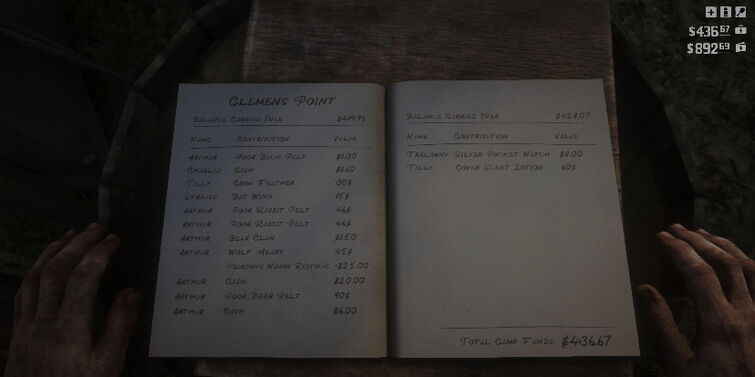 $436.67
$892.69
CLEMENS POINT
BALANCE CARRIED OVER $419.95
NAME CONTRIBUTION VALUE
ARTHUR POOR BUCK PELT $1.30
CHARLES CASH $1.60
TILLY CROW FEATHER 30¢
STRAUSS BAT WING 15¢
ARTHUR POOR RABBIT PELT 46¢
ARTHUR POOR RABBIT PELT 46¢
ARTHUR BEAR CLAW $1.50
ARTHUR WOLF HEART 45¢
PEARSON'S WAGON RESTOCK -$25.00
ARTHUR CASH $20.00
ARTHUR POOR DEER PELT 90¢
ARTHUR CASH $6.00
BALANCE CARRIED OVER $428.07
NAME CONTRIBUTION VALUE
TRELAWNY SILVER POCKET WATCH $8.00
TILLY COVER SCENT LOTION 60¢
TOTAL CAMP FUNDS $436.67